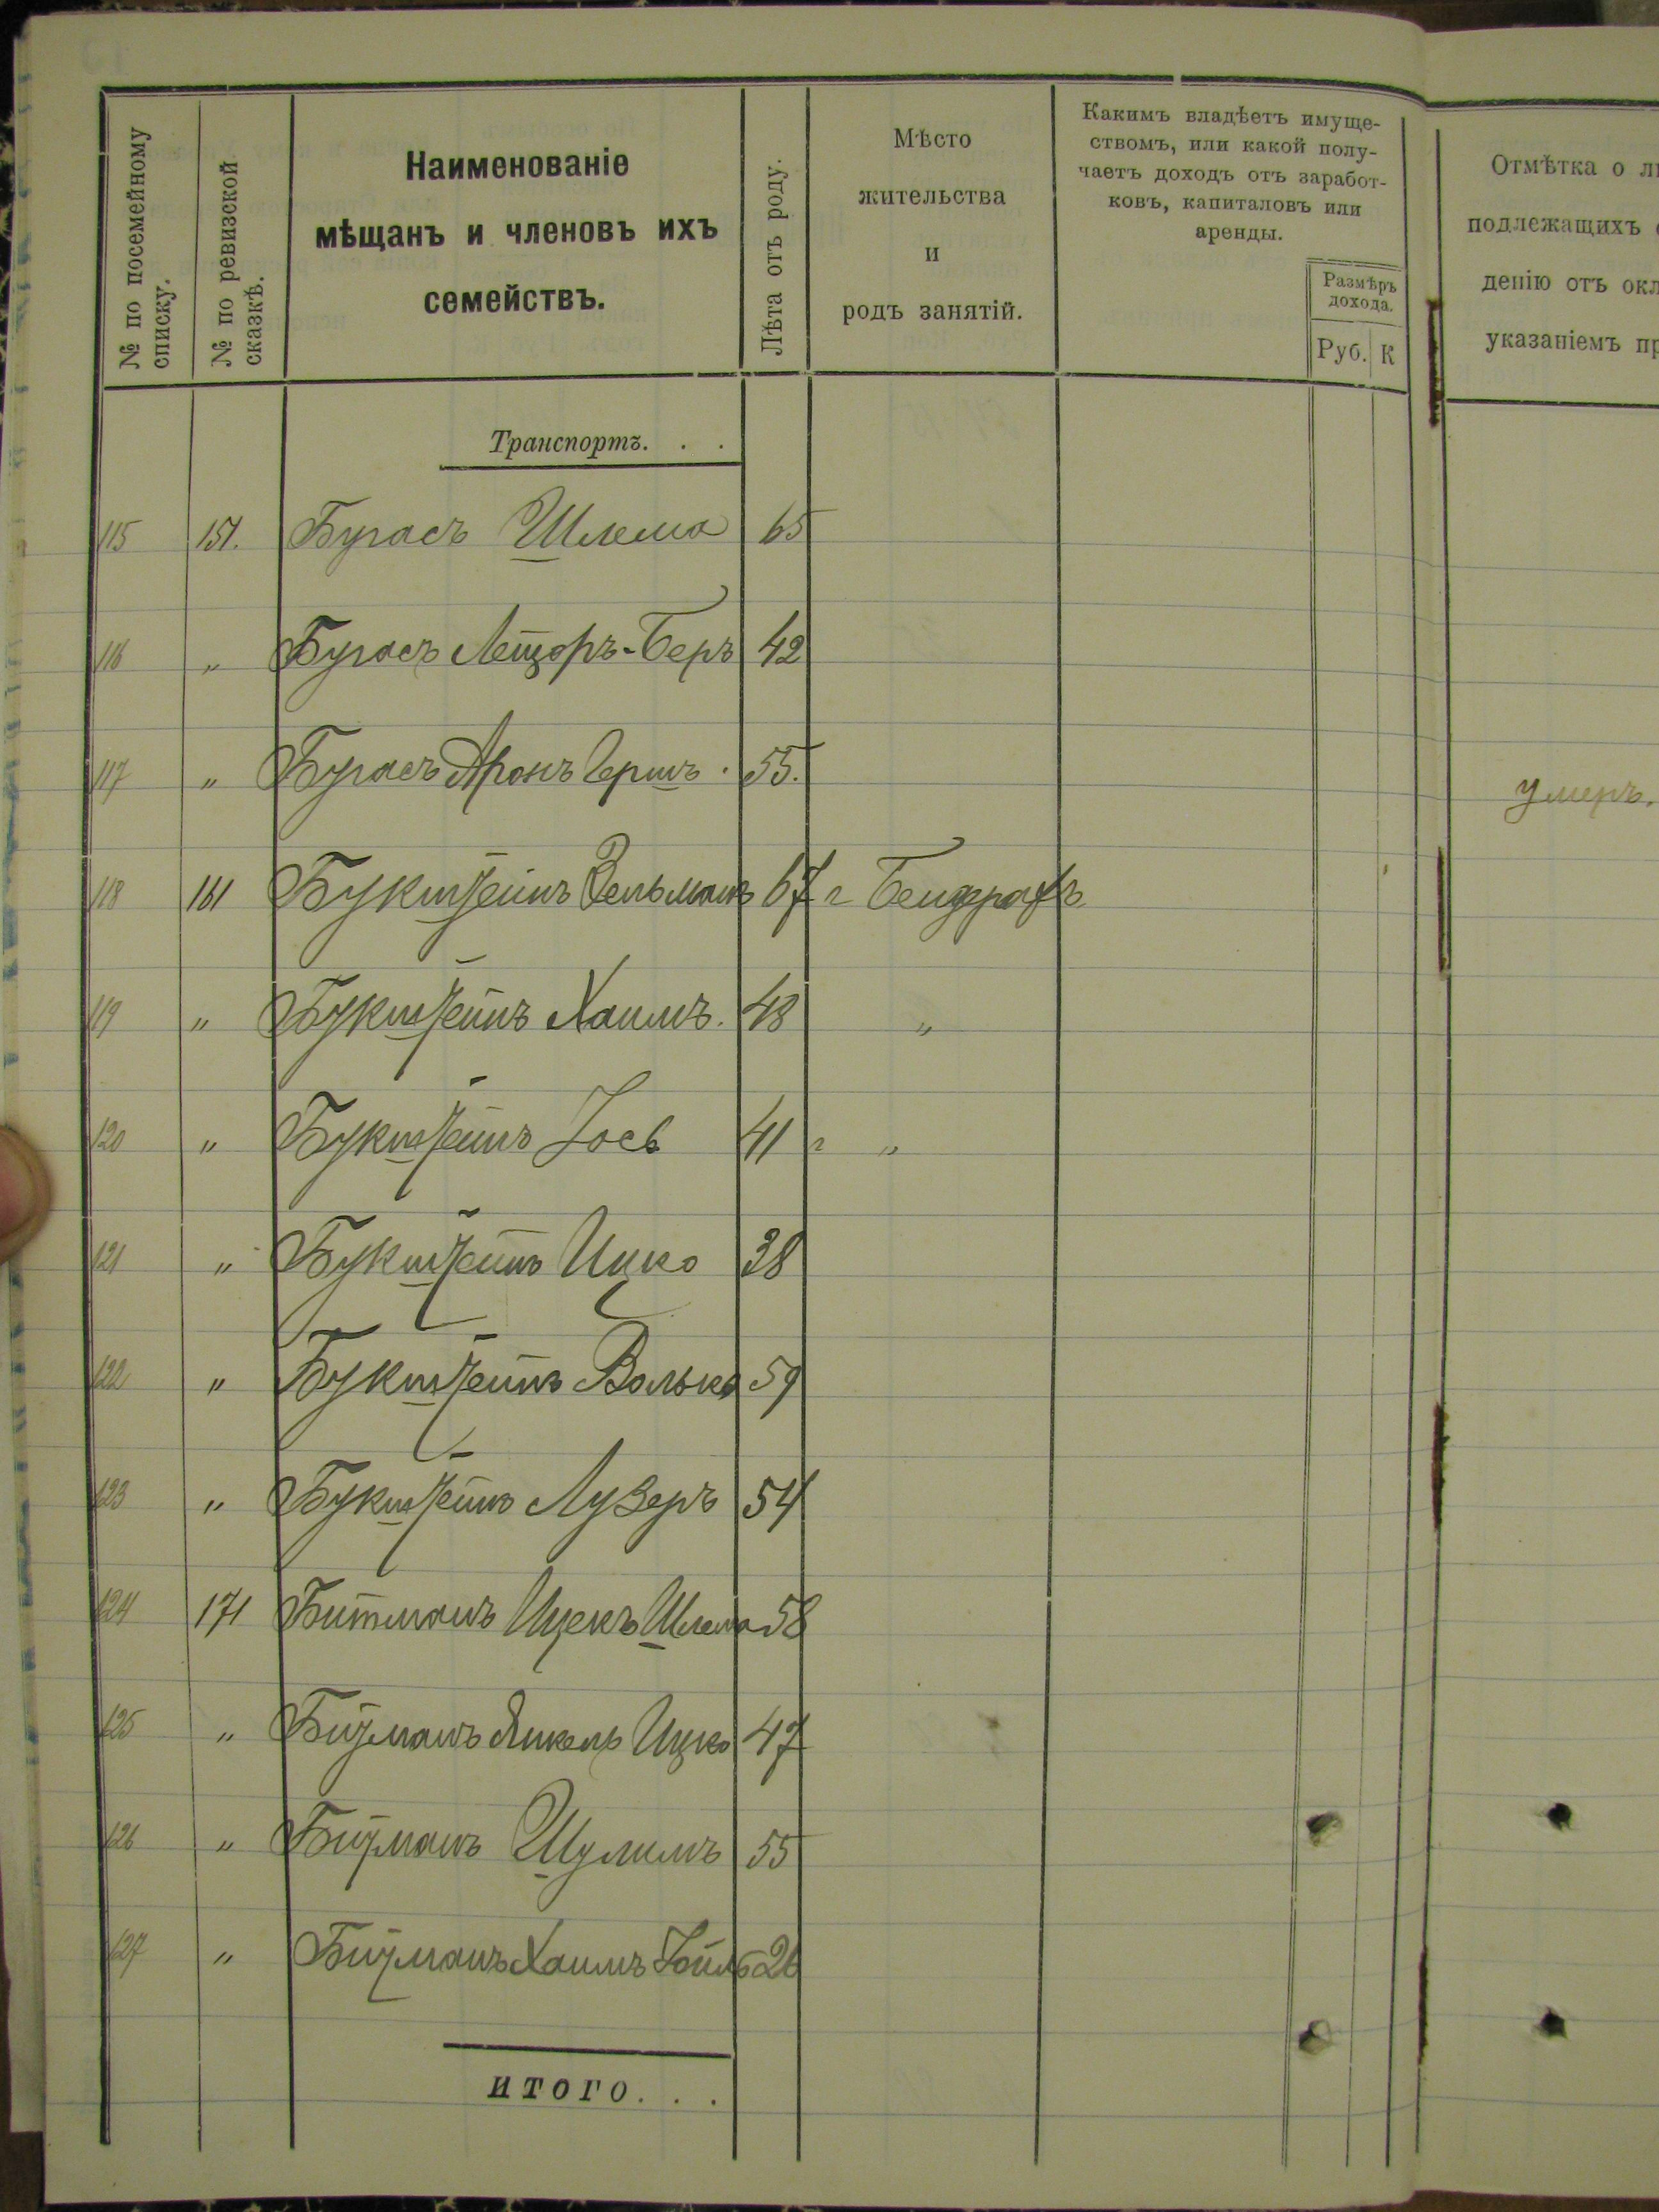 № по посемейному
списку.
№ по ревизской
сказкѣ.
Наименованіе
мѣщанъ и членовъ ихъ
семействъ.
Лѣта отъ роду.
Мѣсто
жительства
и
родъ занятій.
Какимъ владѣетъ имуще-
ствомъ, или какой полу-
чаетъ доходъ отъ заработ-
ковъ, капиталовъ или
аренды.
Размѣръ
дохода.
Руб. К
Отмѣтка о
подлежащихъ
денію отъ
указаніемъ
Транспортъ. . .
115 151. Бугасъ Шлема 65
116 „ Бугасъ -Беръ 42
117 „ Бугасъ Аронъ Гершъ . 55. умеръ.
118 161 Букштейнъ Зельманъ 67 г Бендерахъ
119 „ Букштейнъ Хаимъ. 48 „
120 „ Букштейнъ Іось 41 г „
121 „ Букштейнъ Ицко 38
122 „ Букштейнъ Волько 59
123 „ Букштейнъ Лузеръ 54
124 171 Битманъ Ицекъ Шлема 58
125 „ Битманъ Янкель Ицко 47
126 „ Битманъ Шулимъ 55
127 „ Битманъ Хаимъ Іойль 26
итого. . .